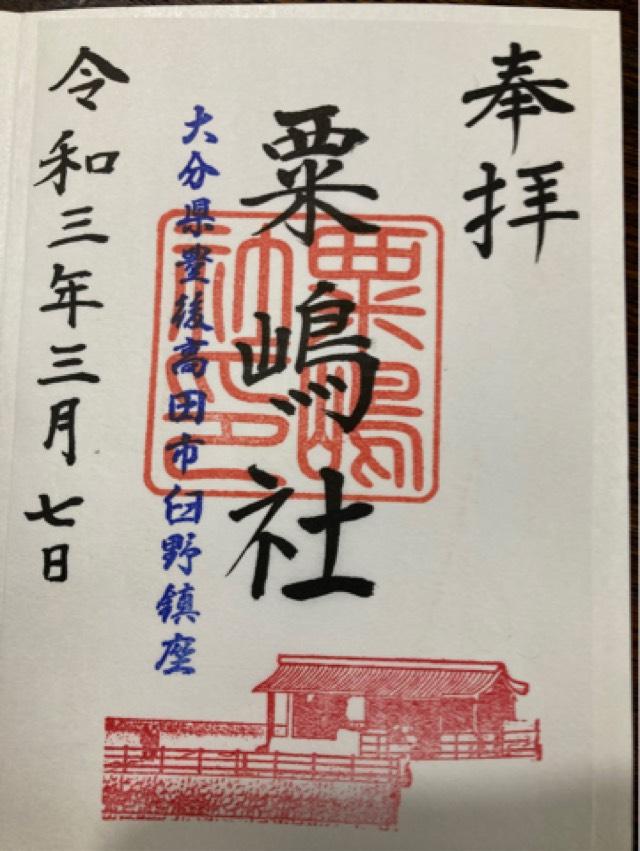 奉拝
粟嶋社
粟嶋
社印
大分県豊後高田市臼野鎮座
令和三年三月七日